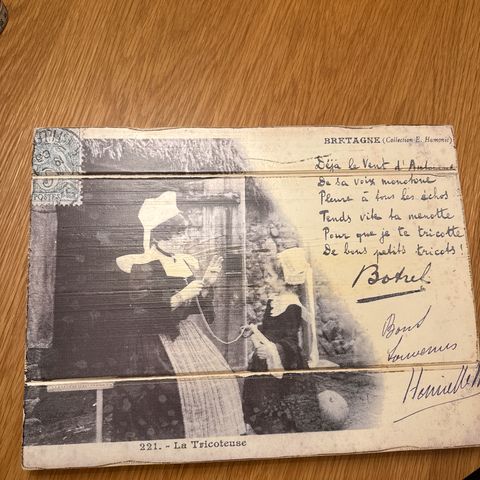 BRETAGNE (Collection E. Hamonic)
Déjà le Vent d'Automne
De sa voix monotone
Pleure à tous les échos
Tends vite ta menotte
Pour que je te tricotte
De bons petits tricots !
Botrel
Bons
Souvenirs
221. - La Tricoteuse